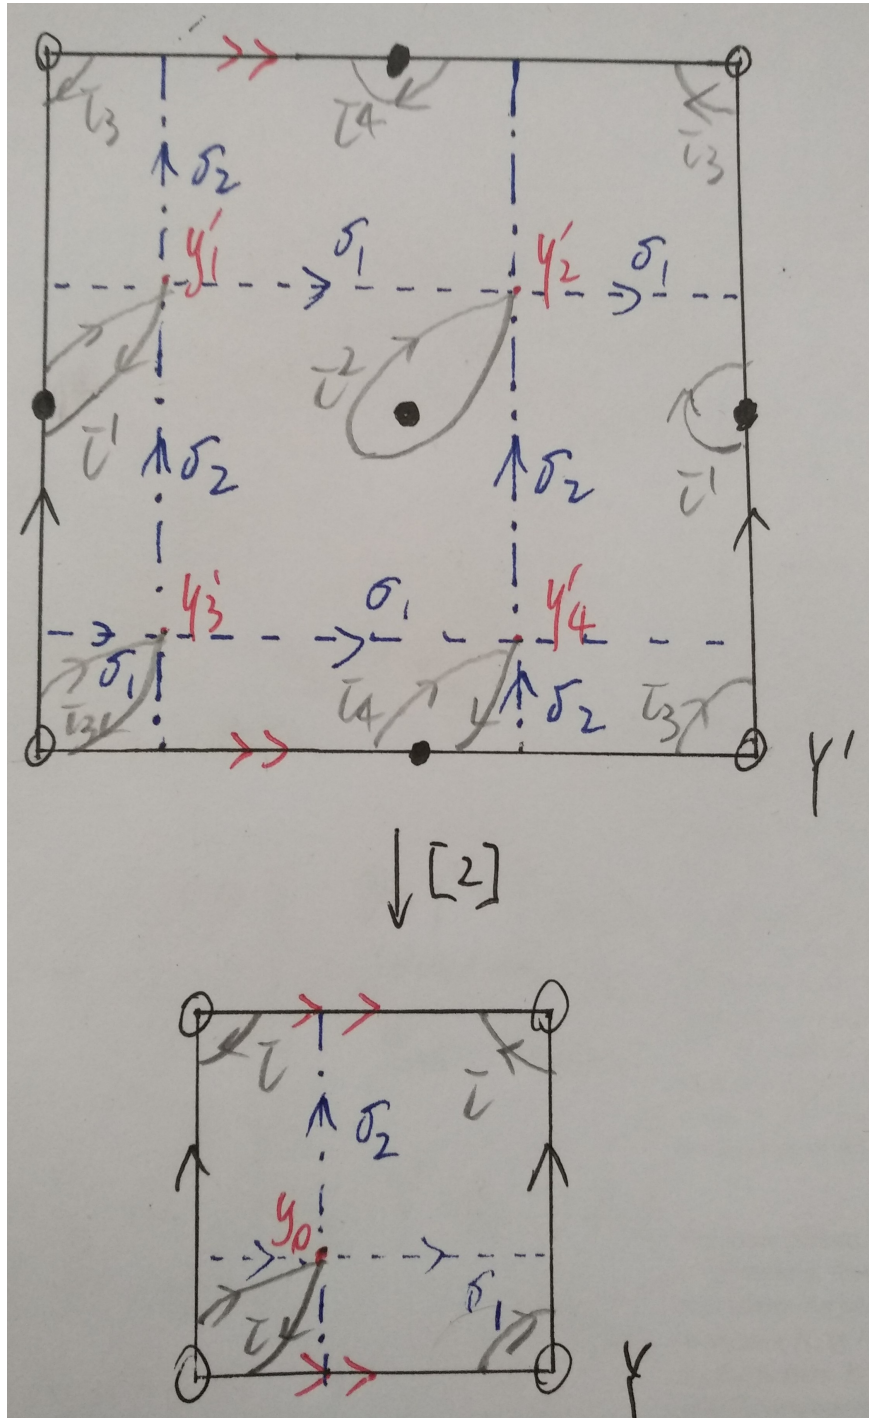 τ₃ τ₄ τ₃
σ₂
y₁′ σ₁ y₂′ σ₁
τ¹ σ₂ τ² σ₂ τ¹
y₃′ σ₁ y₄′
σ₁ τ₃ τ₄ σ₂ τ₃
Y′
[2]
τ τ
σ₂
y₀
τ σ₁
Y